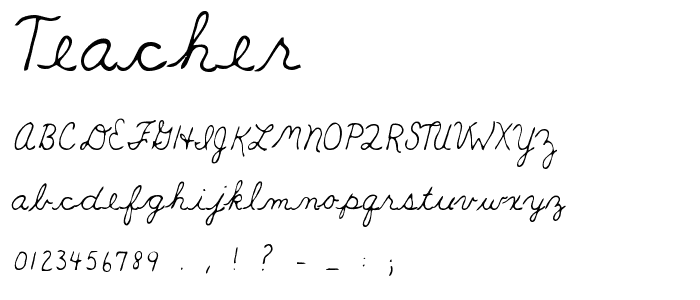 Teacher
ABCDEFGHIJKLMNOPQRSTUVWXYZ
abcdefghijklmnopqrstuvwxyz
0123456789 . , ! ? - _ : ;